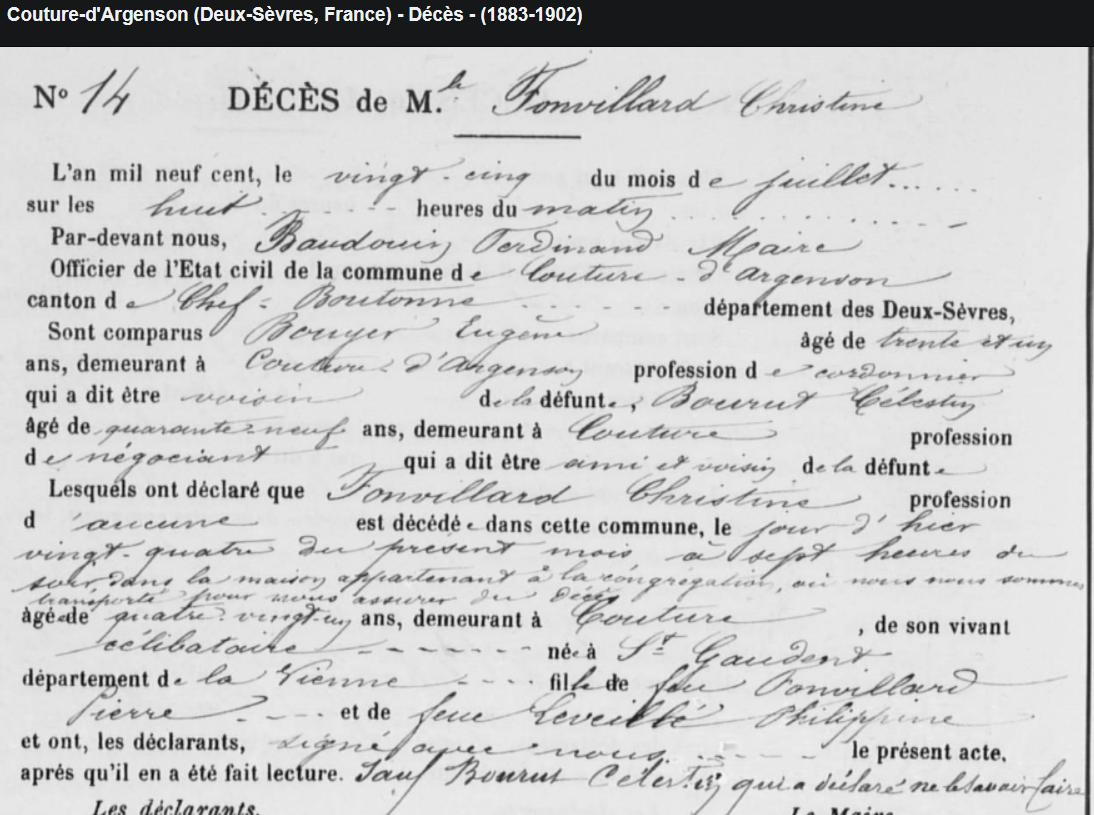 Couture-d'Argenson (Deux-Sèvres, France) - Décès - (1883-1902)
N° 14 DÉCÈS de M.lle Fonvillard Christine
L'an mil neuf cent, le vingt-cinq du mois de juillet.....
sur les huit heures du matin
Par-devant nous, Baudouin Ferdinand Maire
Officier de l'Etat civil de la commune de Couture-d'Argenson
canton de Chef-Boutonne département des Deux-Sèvres,
Sont comparus Bouyer Eugène âgé de trente et un
ans, demeurant à Couture d'Argenson profession de cordonnier
qui a dit être voisin de la défunte, Bourut Célestin
âgé de quarante-neuf ans, demeurant à Couture profession
de négociant qui a dit être ami et voisin de la défunte
Lesquels ont déclaré que Fonvillard Christine profession
d'aucune est décédée dans cette commune, le jour d'hier
vingt-quatre du présent mois à sept heures du
soir dans la maison appartenant à la congrégation, où nous nous sommes
transporté pour nous assurer du décès
âgée de quatre-vingt-un ans, demeurant à Couture, de son vivant
célibataire née à St Gaudent
département de la Vienne fille de feu Fonvillard
Pierre et de feue Leveillé Philippine
et ont, les déclarants, signé avec nous le présent acte,
aprés qu'il en a été fait lecture. Sauf Bourut Célestin qui a déclaré ne le savoir faire
Les déclarants, Le Maire